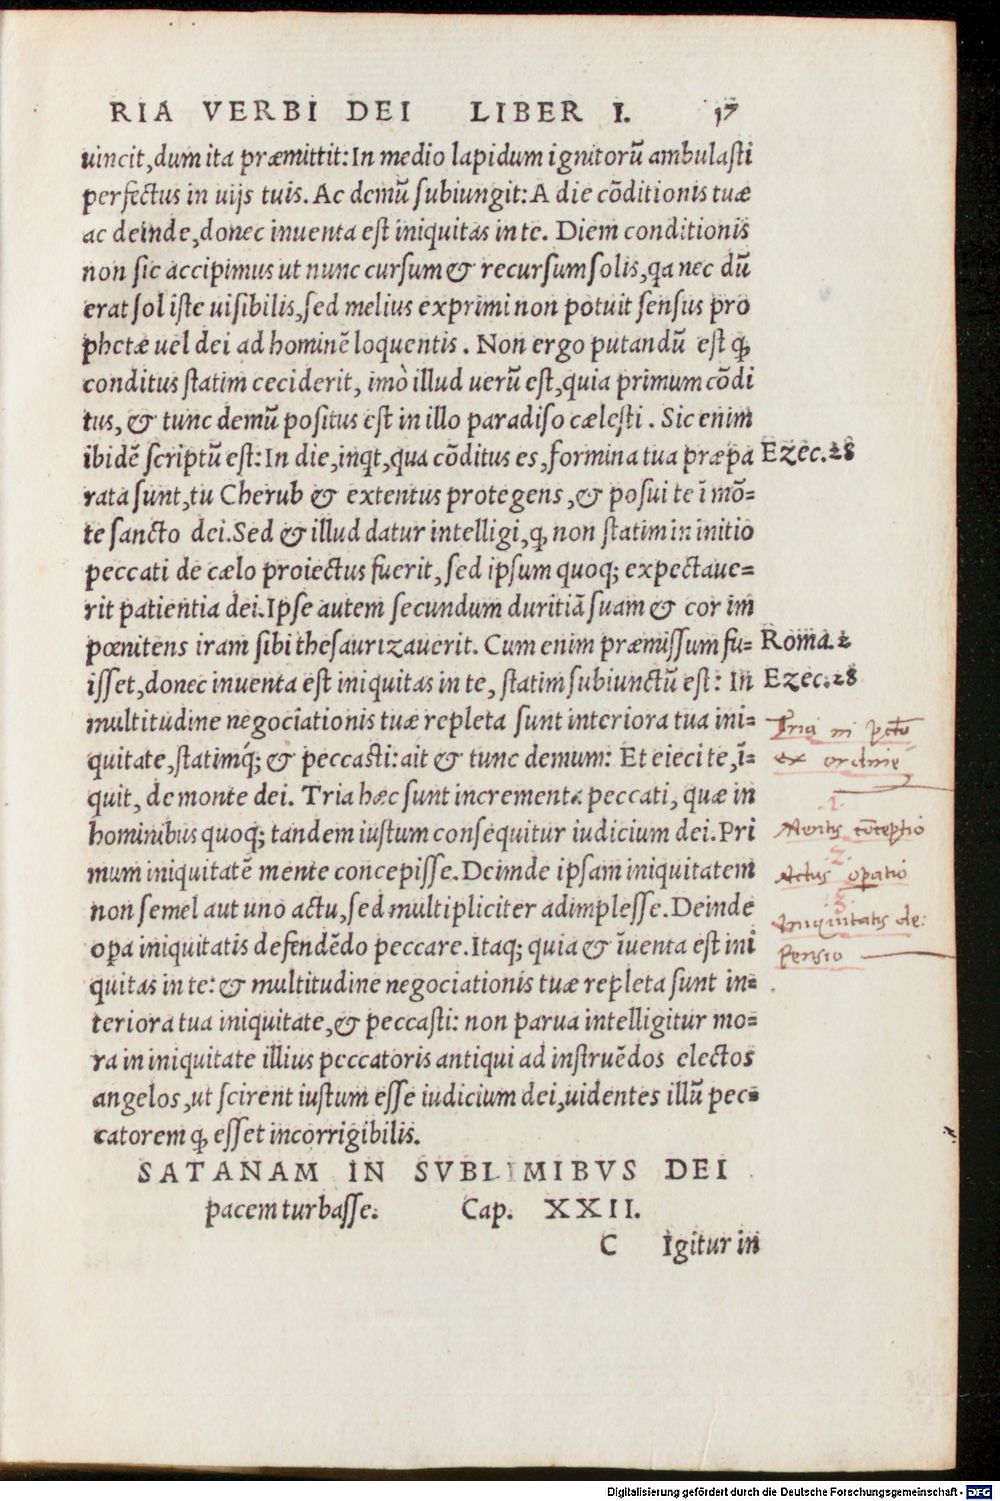 RIA VERBI DEI LIBER I. 17
uincit, dum ita præmittit: In medio lapidum ignitorũ ambulasti
perfectus in uijs tuis. Ac demũ subiungit: A die cõditionis tuæ
ac deinde, donec inuenta est iniquitas in te. Diem conditionis
non sic accipimus ut nunc cursum & recursum solis, qa nec dũ
erat sol iste uisibilis, sed melius exprimi non potuit sensus pro
phetæ uel dei ad hominẽ loquentis. Non ergo putandũ est ꝙ
conditus statim ceciderit, imò illud uerũ est, quia primum cõdi
tus, & tunc demũ positus est in illo paradiso cælesti. Sic enim
ibidẽ scriptũ est: In die, inqt, qua cõditus es, formina tua præpa
Ezec. 28
rata sunt, tu Cherub & extentus protegens, & posui te ĩ mõ=
te sancto dei. Sed & illud datur intelligi, ꝙ non statim in initio
peccati de cælo proiectus fuerit, sed ipsum quoq; expectaue=
rit patientia dei. Ipse autem secundum duritiã suam & cor im
pœnitens iram sibi thesaurizauerit. Cum enim præmissum fu=
Roma. 2
isset, donec inuenta est iniquitas in te, statim subiunctũ est: In
Ezec. 28
multitudine negociationis tuæ repleta sunt interiora tua ini=
quitate, statimq́; & peccasti: ait & tunc demum: Et eieci te, ĩ=
quit, de monte dei. Tria hæc sunt incrementa peccati, quæ in
hominibus quoq; tandem iustum consequitur iudicium dei. Pri
mum iniquitatẽ mente concepisse. Deinde ipsam iniquitatem
non semel aut uno actu, sed multipliciter adimplesse. Deinde
oꝑa iniquitatis defendẽdo peccare. Itaq; quia & ĩuenta est ini
quitas in te: & multitudine negociationis tuæ repleta sunt in=
teriora tua iniquitate, & peccasti: non parua intelligitur mo=
ra in iniquitate illius peccatoris antiqui ad instruẽdos electos
angelos, ut scirent iustum esse iudicium dei, uidentes illũ pec=
catorem ꝙ esset incorrigibilis.
Tria in pctõ
ex ordine
1.
Mentis cõceptio
2.
Actus oꝑatio
3.
Iniquitatis de:
fensio
SATANAM IN SVBLIMIBVS DEI
pacem turbasse. Cap. XXII.
C Igitur in
Digitalisierung gefördert durch die Deutsche Forschungsgemeinschaft - DFG